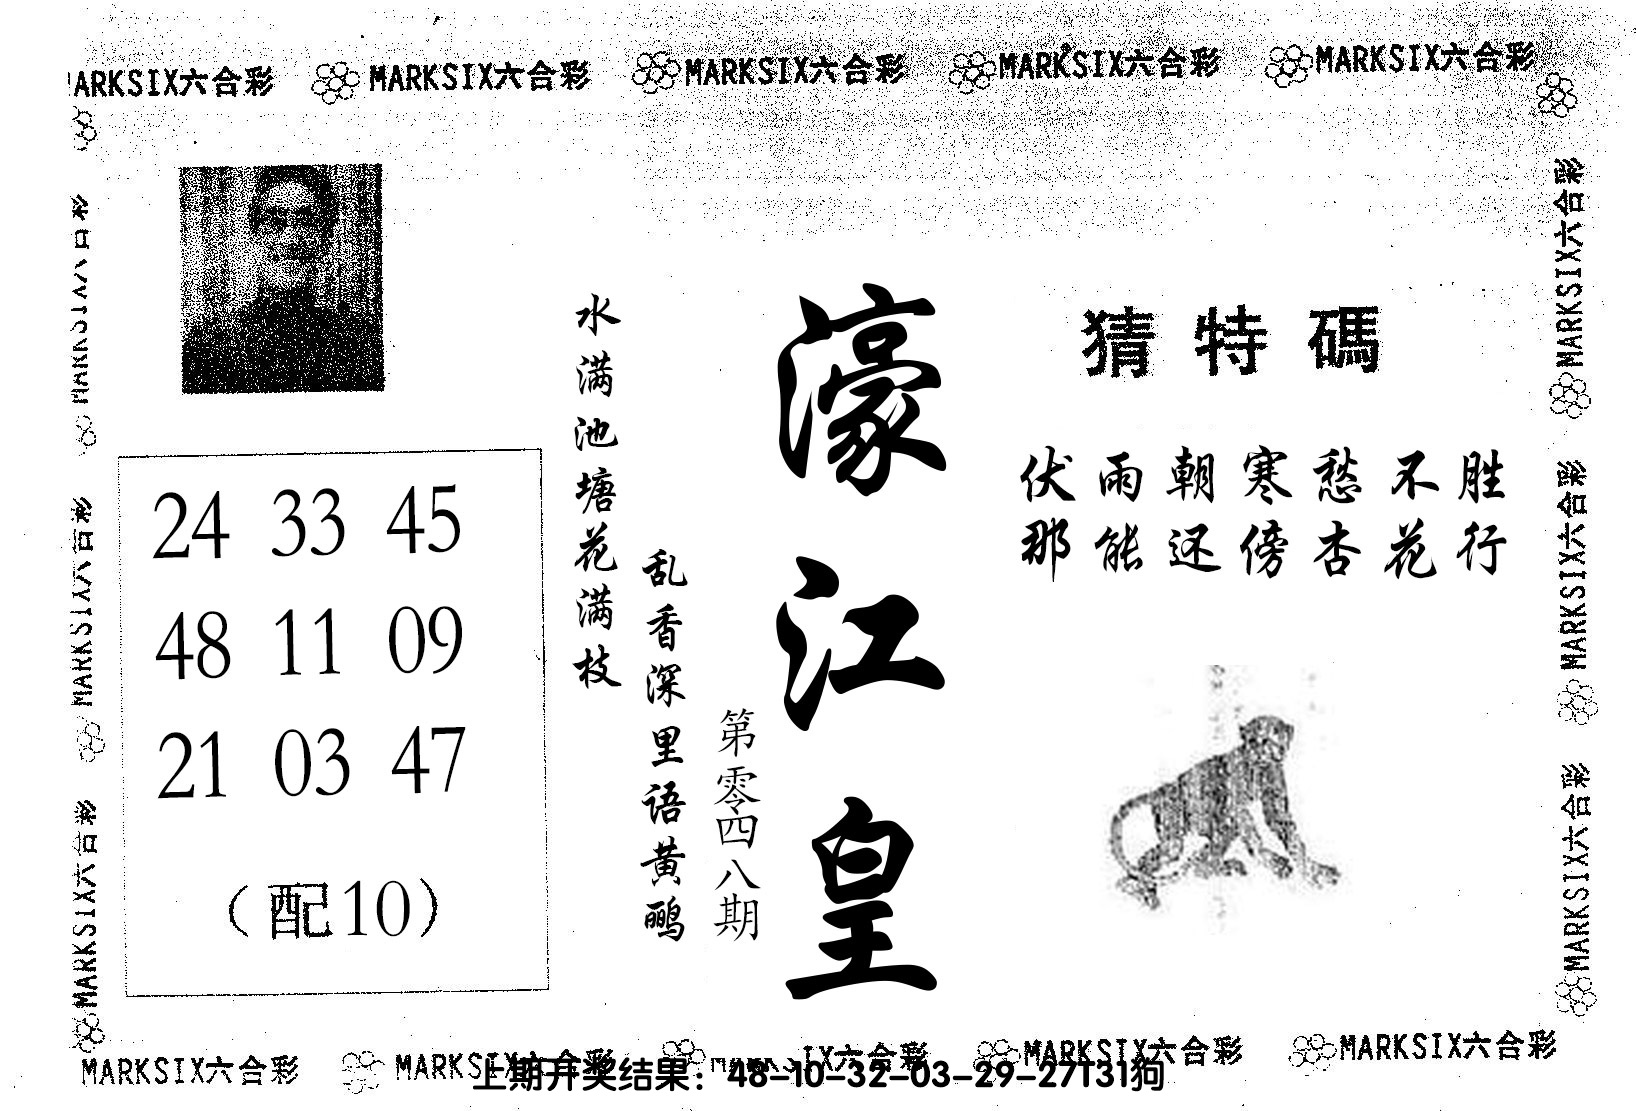 MARKSIX六合彩 MARKSIX六合彩 MARKSIX六合彩 MARKSIX六合彩
MARKSIX六合彩
MARKSIX六合彩
MARKSIX六合彩
MARKSIX六合彩
MARKSIX六合彩
24 33 45
48 11 09
21 03 47
（配10）
水满池塘花满枝
乱香深里语黄鹂
第零四八期
濠江皇
猜特碼
伏雨朝寒愁不胜
那能还傍杏花行
MARKSIX六合彩 MARKSIX六合彩 六合彩 MARKSIX六合彩 MARKSIX六合彩
上期开奖结果：48-10-32-03-29-27T31狗